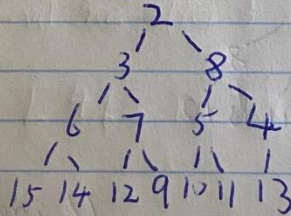 2
3 8
6 7 5 4
15 14 12 9 10 11 13